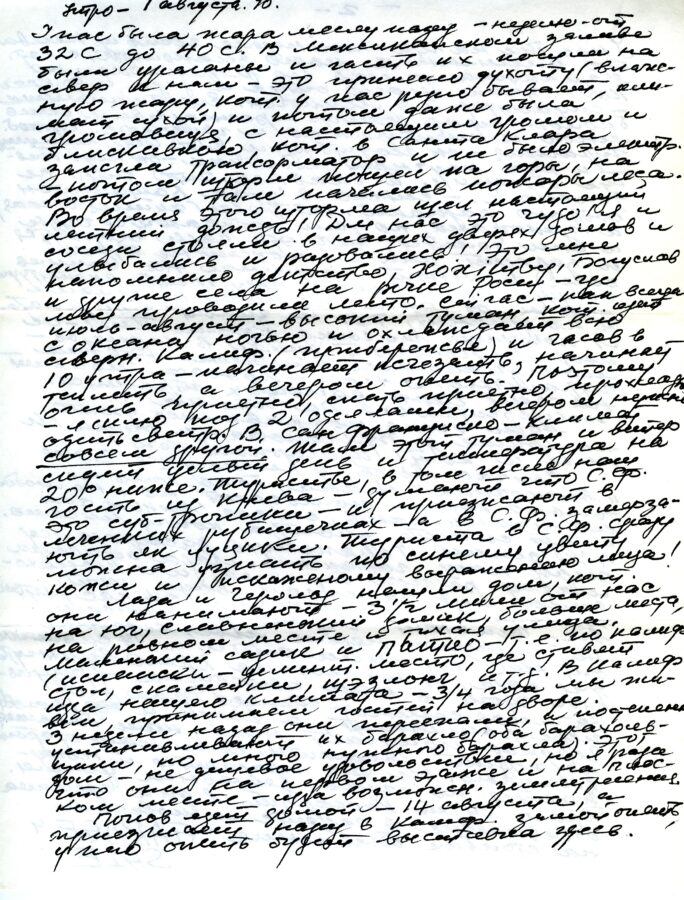 Утро – 1 августа. 90.
У нас была жара месяц назад – неделю – от
32 С до 40 С. В Мексиканском заливе
были ураганы и часть их пошла на
север и нам – это принесло духоту (влаж-
ную жару, кот. у нас редко бывает, кли-
мат сухой) и потом даже была
громовица, с настоящим громом и
блискавкою кот. в Санта Клара
запалила трансформатор и не было электр.
а потом шторм пошел на горы, на
восток и там начались пожары леса.
Во время этого шторма шел настоящий
летний дождь! Для нас это чудо! Я и
соседи стояли в наших дверях домов и
улыбались и радовались! Это мне
напомнило детство, Хохитву, Богуслав
и другие села на речке Рось – где
мы проводили лето. Сейчас – как всегда
июль-август – высокий туман, кот. идет
с океана ночью и охлаждает всю
северн. Калиф. (прибережье) и часов в
10 утра – начинает исчезать, начинает
теплеть а вечером опять. Поэтому
очень приятно спать, приятно прохладно
– я сплю под 2 одеялами, вечером нужно
одеть светр. В Сан Франциско – климат
совсем другой. Там этот туман и ветер
сидит целый день и температура на
20° ниже. Туристы, в том числе наш
гость из Киева – думают что С.Ф.
это суб-тропики – и приезжают в
летних рубашечках – а в С.Ф. замерза-
ють як цуцики. Туриста в С.Ф. сразу
можна узнать по синему цвету
кожи и искаженому выражению лица!
Лада и Герольд нашли дом, кот.
они нанимают – 3 1/2 мили от нас
на юг, славненький домик, больше места,
на ровном месте и тихая улица.
Маленький садик и патио – т.е. по калиф.
(испански – цемент. место, где ставят
стол, скамейки, шэзлонг и т.д. В Калиф.
из-за нашего климата – 3/4 года мы жи-
вем, принимаем гостей на дворе.
3 недели назад они переехали, и постепенно
устанавливают их барахло (оба барахоль-
щики, но много нужного барахла). Этот
дом – не дешевое удовольствие, но я рада
что они на первом этаже и на плос-
ком месте – из-за возможн. землетрясения.
Попов едет домой – 14 августа, и
приезжает назад в Калиф. зимой опять,
у него опять будет выставка здесь.